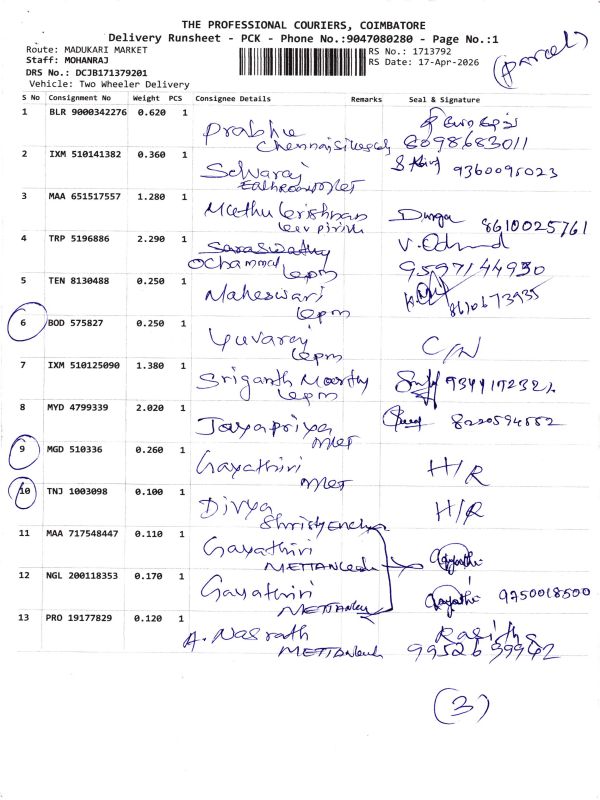 THE PROFESSIONAL COURIERS, COIMBATORE
Delivery Runsheet - PCK - Phone No.:9047080280 - Page No.:1
Route: MADUKARI MARKET
RS No.: 1713792
Staff: MOHANRAJ
RS Date: 17-Apr-2026
(Parcel)
DRS No.: DCJB171379201
Vehicle: Two Wheeler Delivery
S No Consignment No Weight PCS Consignee Details Remarks Seal & Signature
1 BLR 9000342276 0.620 1
Prabhu
8098683011
2 IXM 510141382 0.360 1
Selvaraj 9360095023
3 MAA 651517557 1.280 1
Muthu Krishnan Durga 8610025761
4 TRP 5196886 2.290 1
Saraswathy
Ochammal
9597144930
5 TEN 8130488 0.250 1
Maheswari 8610673935
6 BOD 575827 0.250 1
Yuvaraj C/N
7 IXM 510125090 1.380 1
Sriganth Moorthy
8 MYD 4799339 2.020 1
Jayapriya
9 MGD 510336 0.260 1
Gayathiri H/R
10 TNJ 1003098 0.100 1
Divya H/R
11 MAA 717548447 0.110 1
Gayathiri Gayathri
12 NGL 200118353 0.170 1
Gayathiri Gayathi 9750018500
13 PRO 19177829 0.120 1
A. Nasrath
99526 39942
(3)